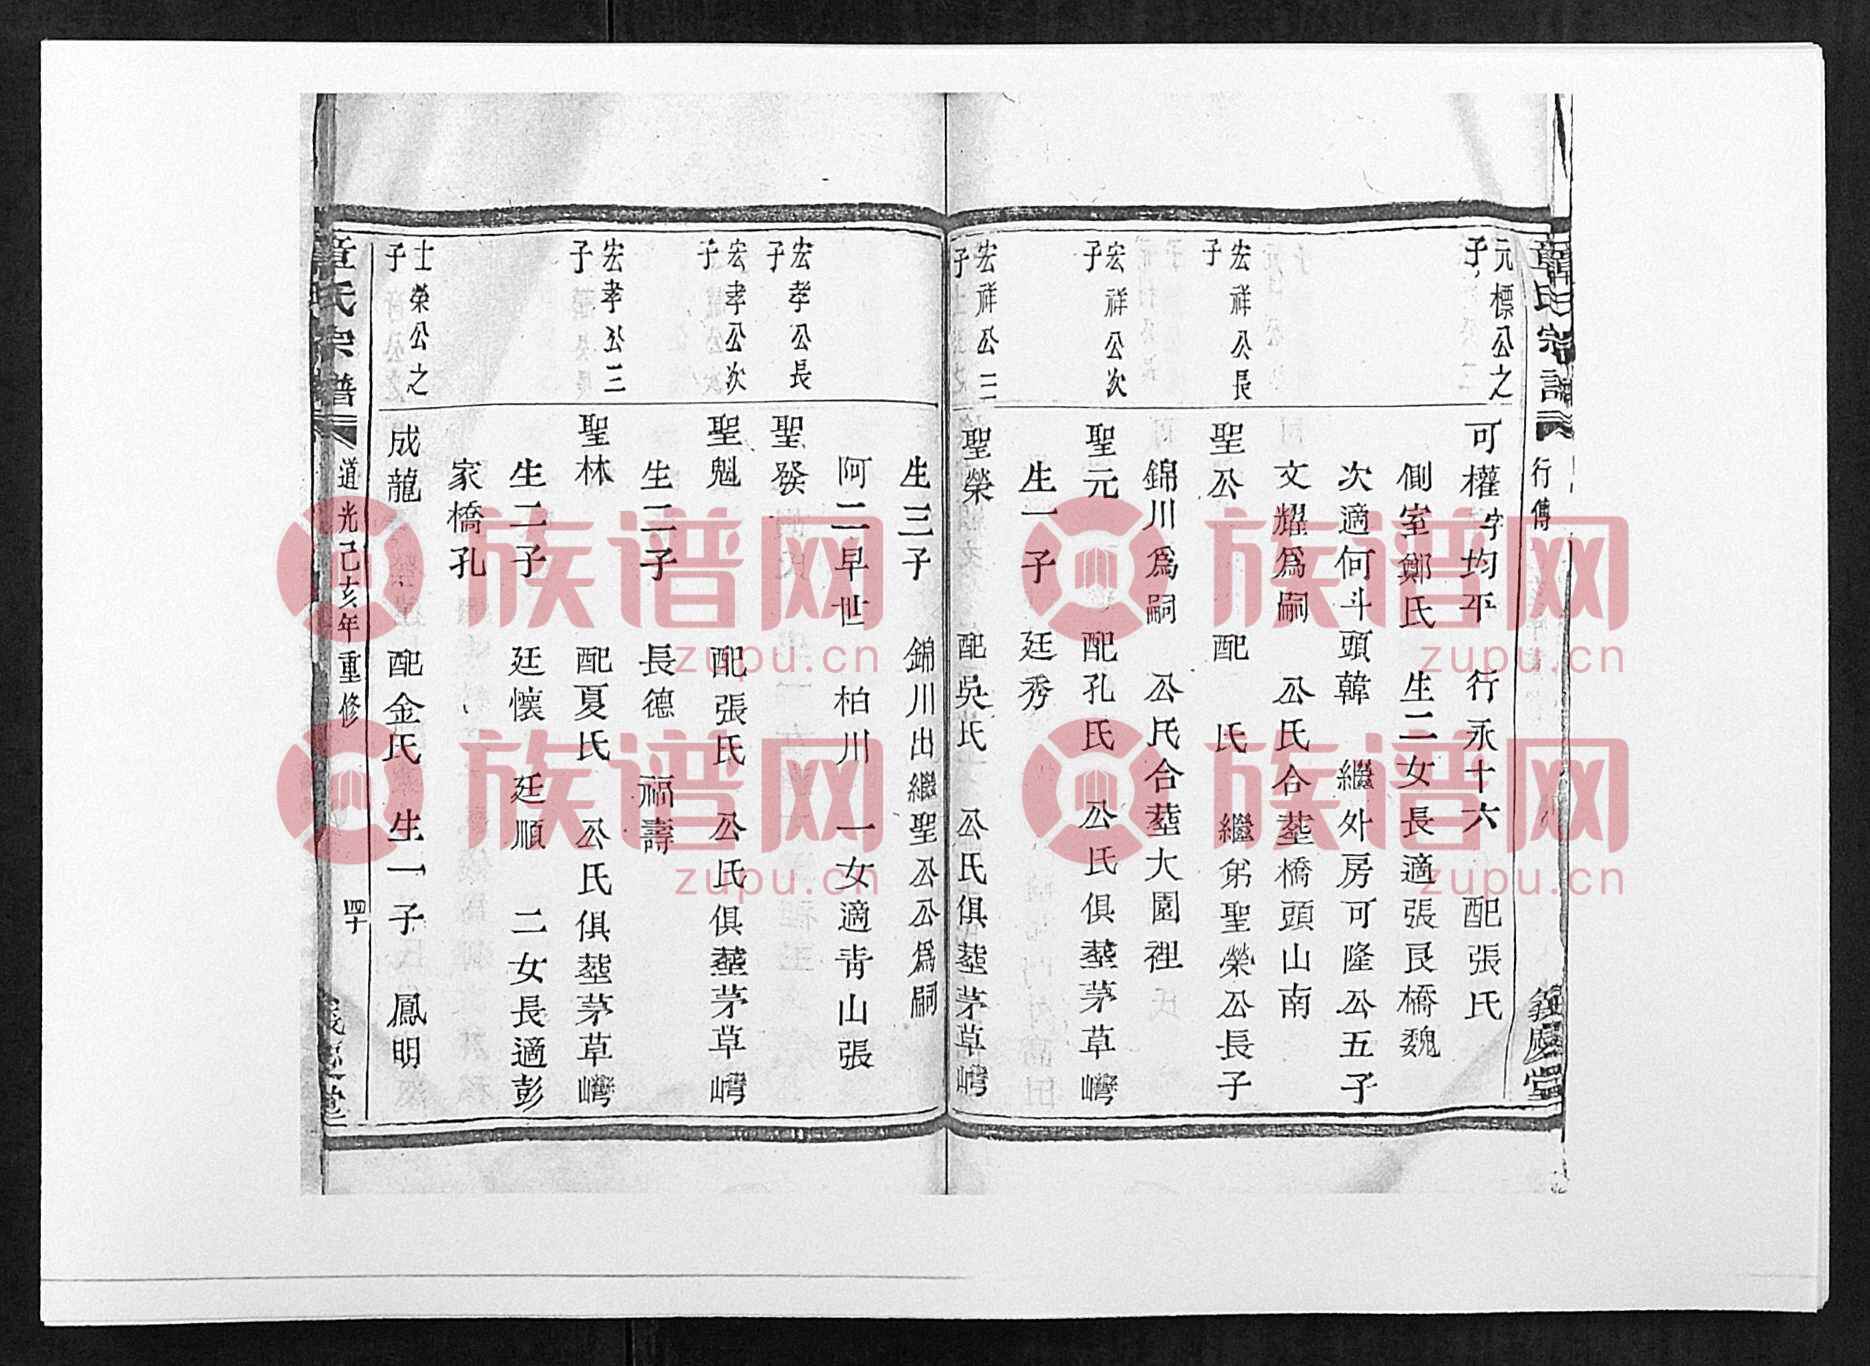 章氏宗譜
行傳
義慶堂
元標公之子
可權字均平 行永十六 配張氏
側室鄭氏 生二女長適張艮橋魏
次適何斗頭韓 繼外房可隆公五子
文耀為嗣 公氏合塟橋頭山南
宏祥公長子
聖公 配 氏 繼弟聖榮公長子
錦川為嗣 公氏合塟大園裡
宏祥公次子
聖元 配孔氏 公氏俱塟茅草嶹
生一子 廷秀
宏祥公三子
聖榮 配吳氏 公氏俱塟茅草嶹
生三子 錦川出繼聖公公為嗣
阿二早世 柏川 一女適青山張
宏孝公長子
聖發
宏孝公次子
聖魁 配張氏 公氏俱塟茅草嶹
生二子 長德 福壽
宏孝公三子
聖林 配夏氏 公氏俱塟茅草嶹
生二子 廷懷 廷順 二女長適彭
家橋孔
士榮公之子
成龍 配金氏 生一子 鳳明
章氏宗譜
道光己亥年重修
四十
族谱网
zupu.cn
族谱网
zupu.cn
族谱网
zupu.cn
族谱网
zupu.cn